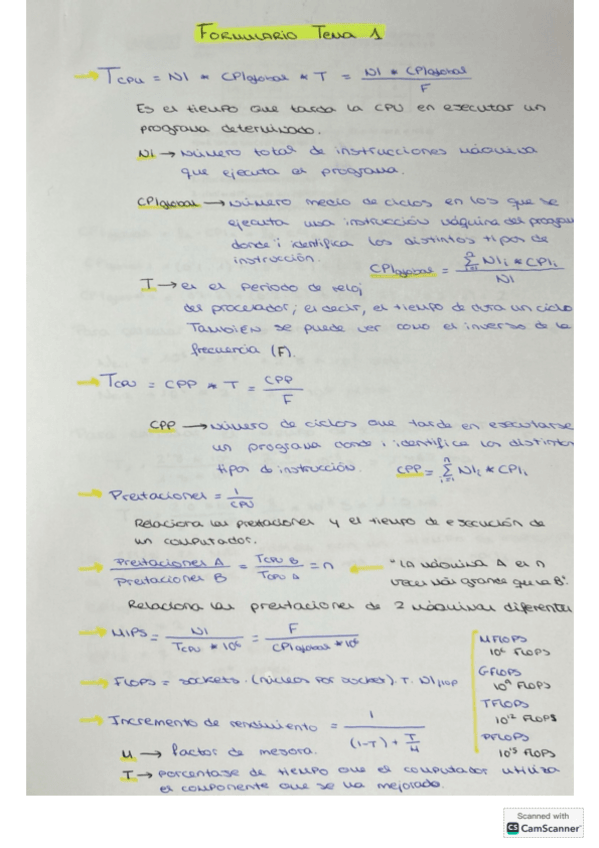 FORMULARIO TEMA 1
TCPU = NI * CPIglobal * T = NI * CPIglobal / F
Es el tiempo que tarda la CPU en ejecutar un
programa determinado.
NI → Número total de instrucciones máquina
que ejecuta el programa.
CPIglobal → Número medio de ciclos en los que se
ejecuta una instrucción máquina del program
donde i identifica los distintos tipos de
instrucción. CPIglobal = Σ NIi * CPIi / NI
T → es el periodo de reloj
del procesador; es decir, el tiempo de dura un ciclo
También se puede ver como el inverso de la
frecuencia (F).
TCPU = CPP * T = CPP / F
CPP → Número de ciclos que tarda en ejecutarse
un programa donde i identifica los distintos
tipos de instrucción. CPP = Σ NIi * CPIi
Prestaciones = 1 / CPU
Relaciona las prestaciones y el tiempo de ejecución de
un computador.
Prestaciones A / Prestaciones B = TCPU B / TCPU A = n ← "La máquina A es n
veces más grande que la B".
Relaciona las prestaciones de 2 máquinas diferentes
MIPS = NI / TCPU * 10^6 = F / CPIglobal * 10^6
MFLOPS
10^6 FLOPS
GFLOPS
10^9 FLOPS
TFLOPS
10^12 FLOPS
PFLOPS
10^15 FLOPS
FLOPS = sockets · (núcleos por socket) · T · NI/flop
Incremento de rendimiento = 1 / (1-T) + T/M
M → factor de mejora.
T → porcentaje de tiempo que el computador utiliza
el componente que se ha mejorado.
Scanned with
CS CamScanner